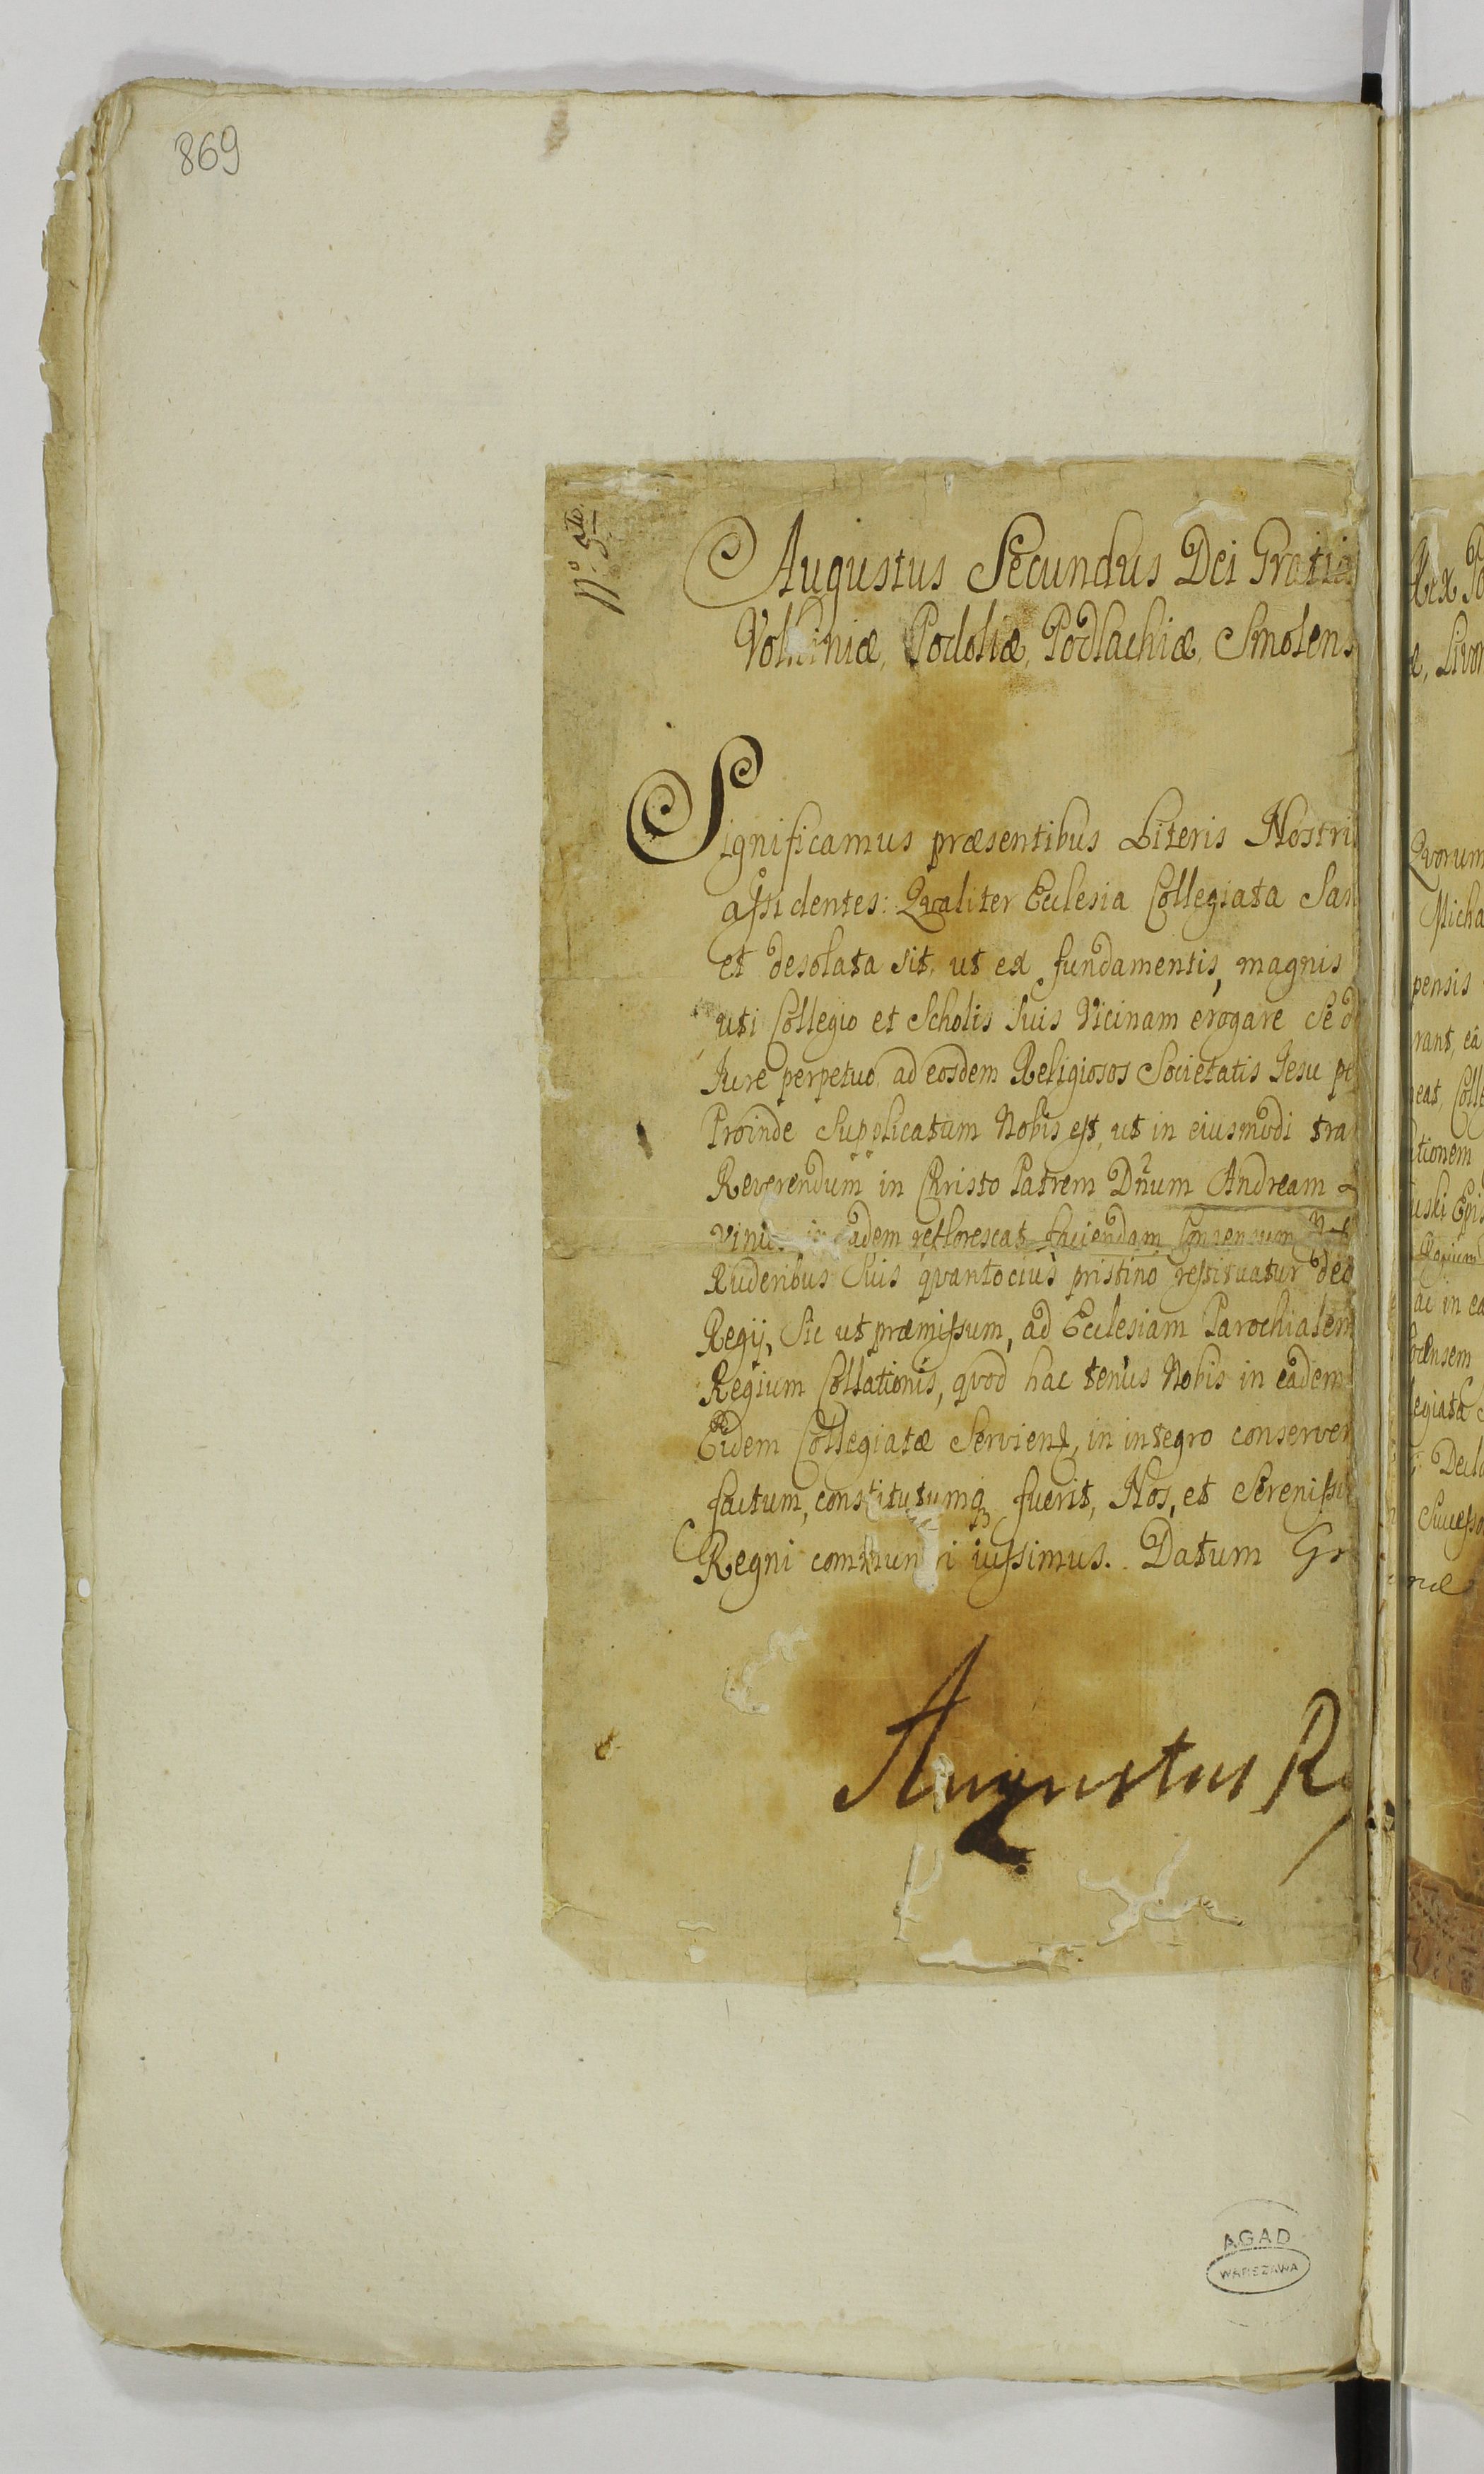 869
Nº 5to
Augustus Secundus Dei Gratia
Volhiniæ, Podoliæ, Podlachiæ, Smolens
Significamus præsentibus Literis Nostri
assidentes: Qvaliter Ecclesia Collegiata San
et desolata sit, ut ex fundamentis, magnis
uti Collegio et Scholis suis Vicinam erogare se d
Jure perpetuo, ad eosdem Religiosos Societatis Jesu pe
Proinde supplicatum Nobis est, ut in eiusmodi tra
Reverendum in Christo Patrem Dnum Andream
adem reflorescat faciendam Consensum
Ruderibus suis qvantocius pristino restituatur dec
Regij, Sic ut præmissum, ad Ecclesiam Parochialem
Regium Collationis, qvod hac tenus Nobis in eadem
Eidem Collegiatæ Servient, in integro conserven
factum, constitutumq fuerit, Nos, et Serenissi
Regni commun i iussimus. Datum Gr
Augustus R
AGAD
WARSZAWA
Rex Po
æ, Livon
Qvorum
Micha
pensis
rant, eâ
eat, Colle
tionem
uski Epis
Regium
ac in ea
ocensem
legiatæ
Decla
Successo